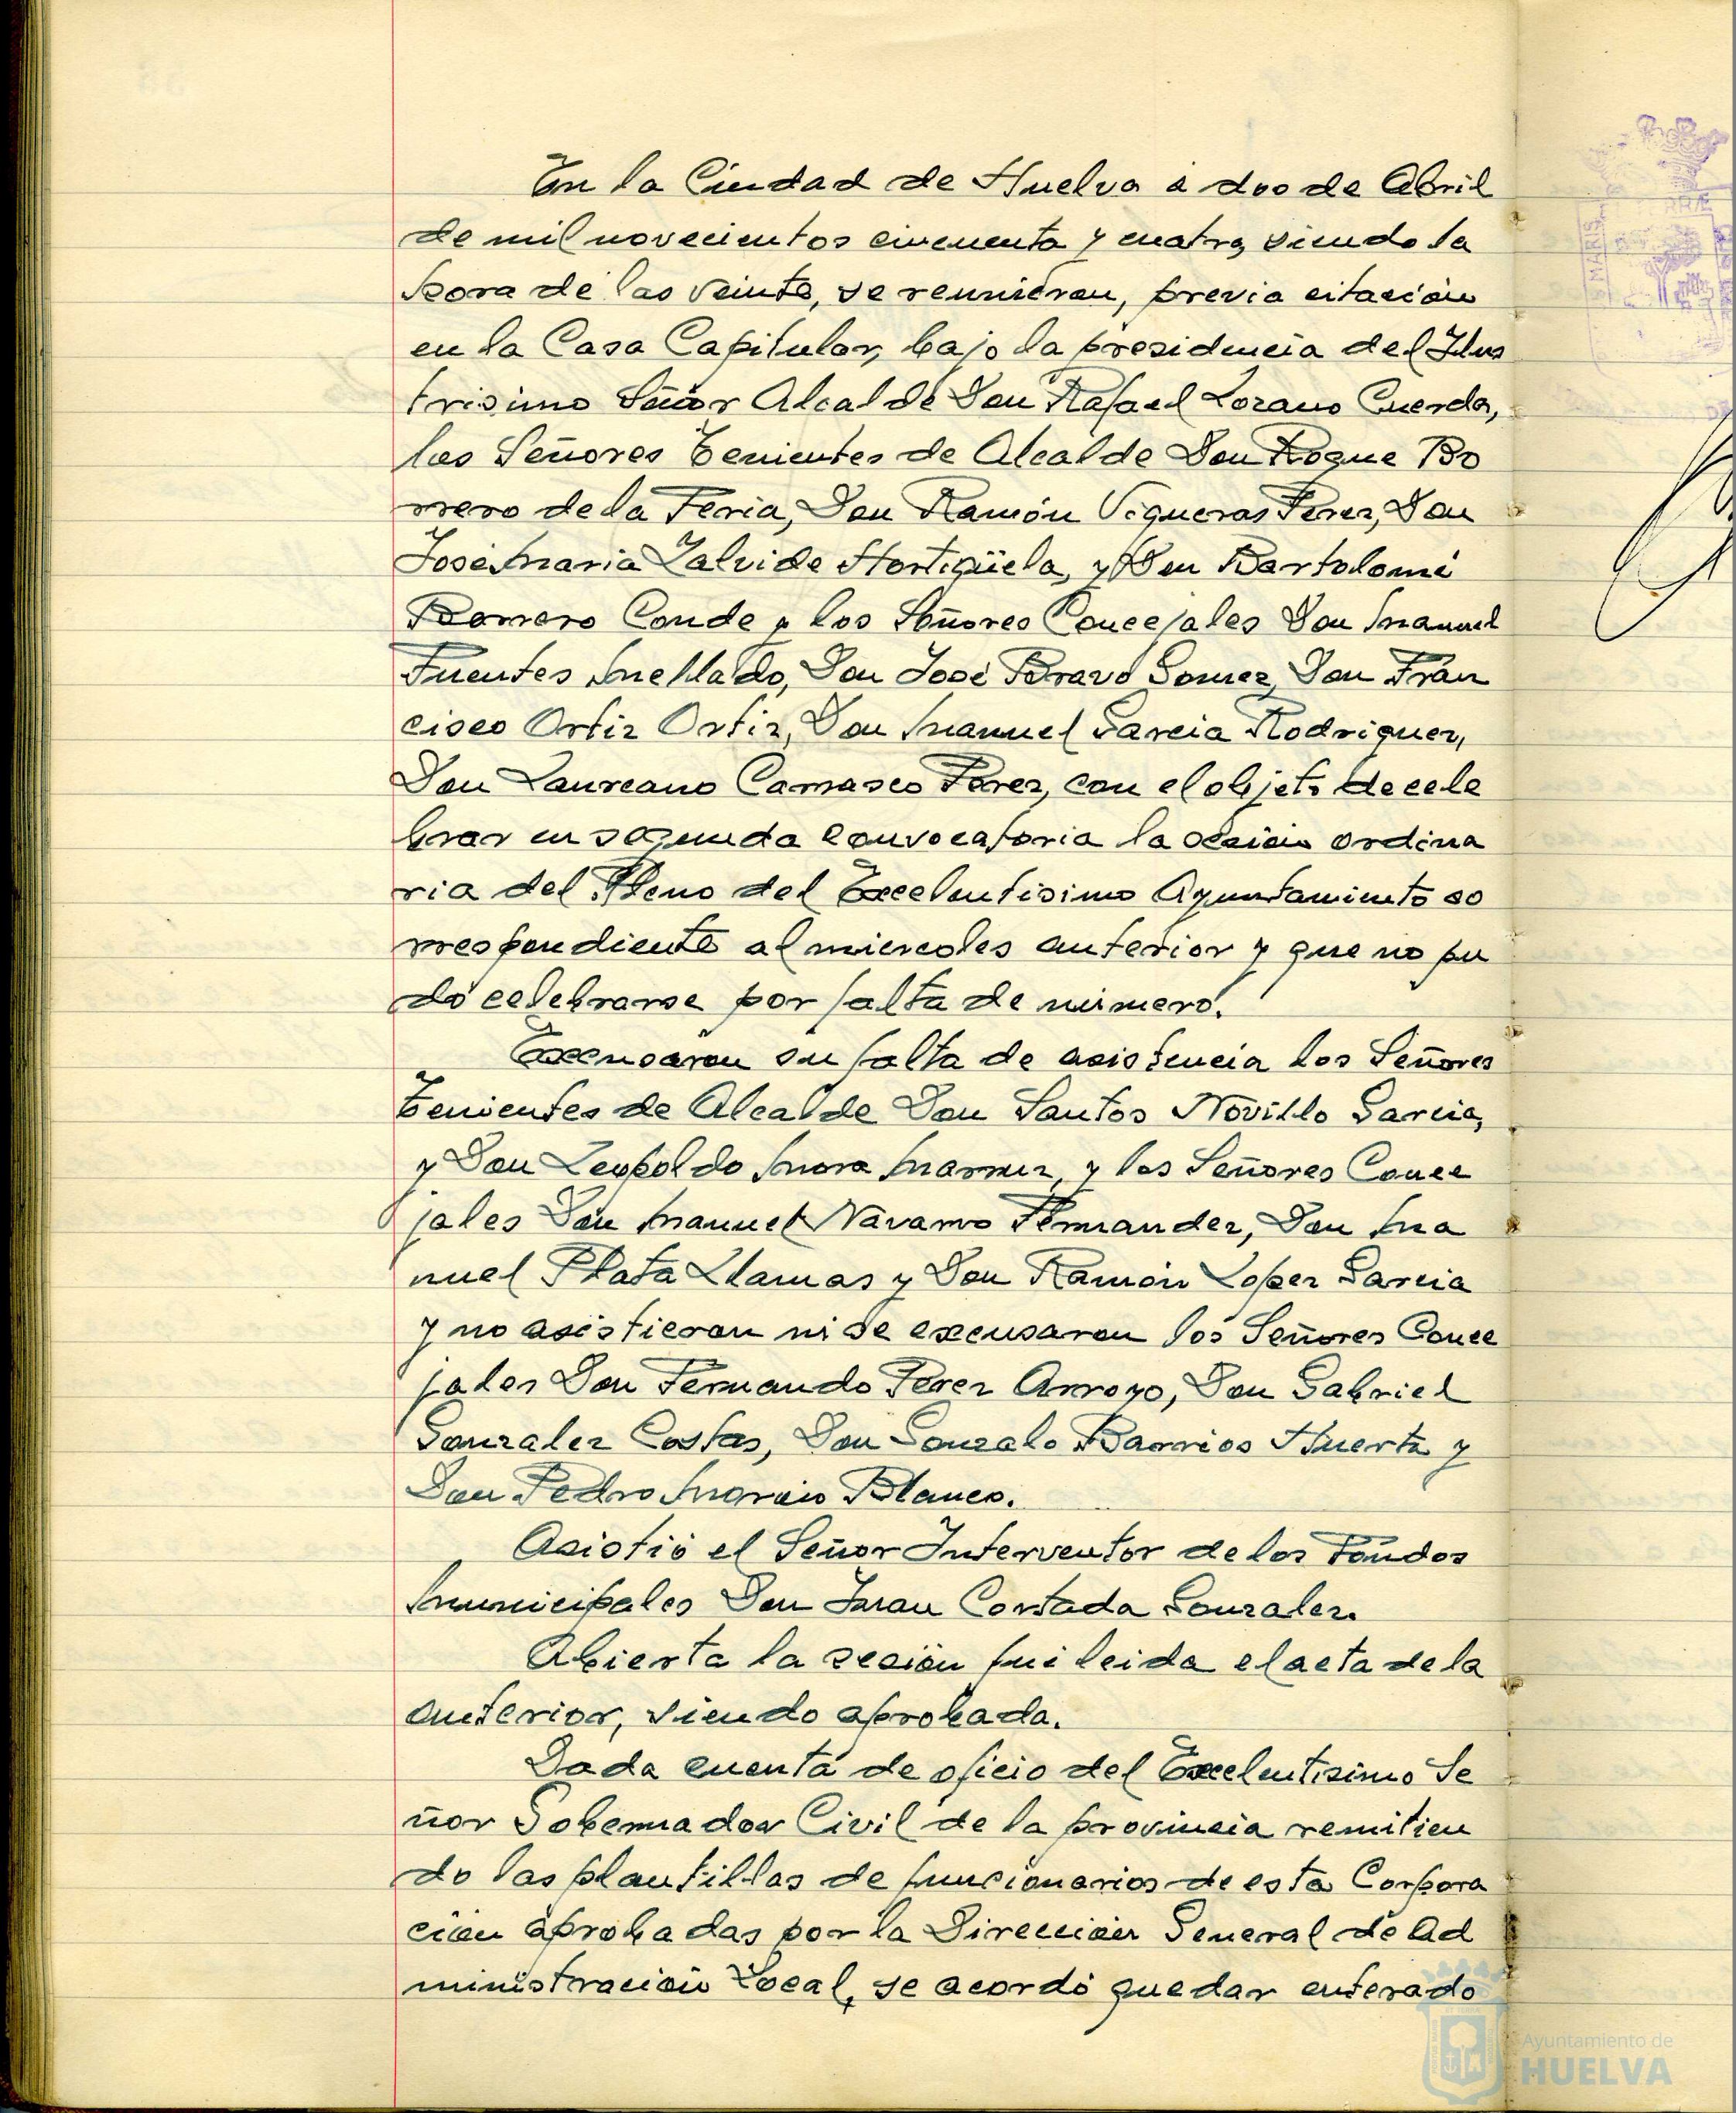 En la Ciudad de Huelva a dos de Abril
de mil novecientos cincuenta y cuatro, siendo la
hora de las veinte, se reunieron, previa citación
en la Casa Capitular, bajo la presidencia del Ilus
trisimo Señor Alcalde Don Rafael Lozano Cuerda,
los Señores Tenientes de Alcalde Don Roque Bo
rrero de la Feria, Don Ramón Vigueras Perez, Don
José Maria Zalvide Hortigüela, y Don Bartolomé
Romero Conde y los Señores Concejales Don Manuel
Fuentes Mellado, Don José Bravo Gomez, Don Fran
cisco Ortiz Ortiz, Don Manuel Garcia Rodriguez,
Don Laureano Carrasco Perez, con el objeto de cele
brar en segunda convocatoria la sesión ordina
ria del Pleno del Excelentisimo Ayuntamiento co
rrespondiente al miercoles anterior y que no pu
do celebrarse por falta de número.
Excusaron su falta de asistencia los Señores
Tenientes de Alcalde Don Santos Novillo Garcia,
y Don Leopoldo Mora, y los Señores Conce
jales Don Manuel Navarro Fernandez, Don Ma
nuel Plata Llamas y Don Ramón Lopez Garcia
y no asistieron ni se excusaron los Señores Conce
jales Don Fernando Perez Arroyo, Don Gabriel
Gonzalez Costas, Don Gonzalo Barrios Huerta y
Don Pedro Blanco.
Asistió el Señor Interventor de los Fondos
Municipales Don Juan Cortada Gonzalez.
Abierta la sesión fué leida el acta de la
anterior, siendo aprobada.
Dada cuenta de oficio del Excelentisimo Se
ñor Gobernador Civil de la provincia remitien
do las plantillas de funcionarios de esta Corpora
ción aprobadas por la Dirección General de Ad
ministración Local, se acordó quedar enterado
Ayuntamiento de
HUELVA